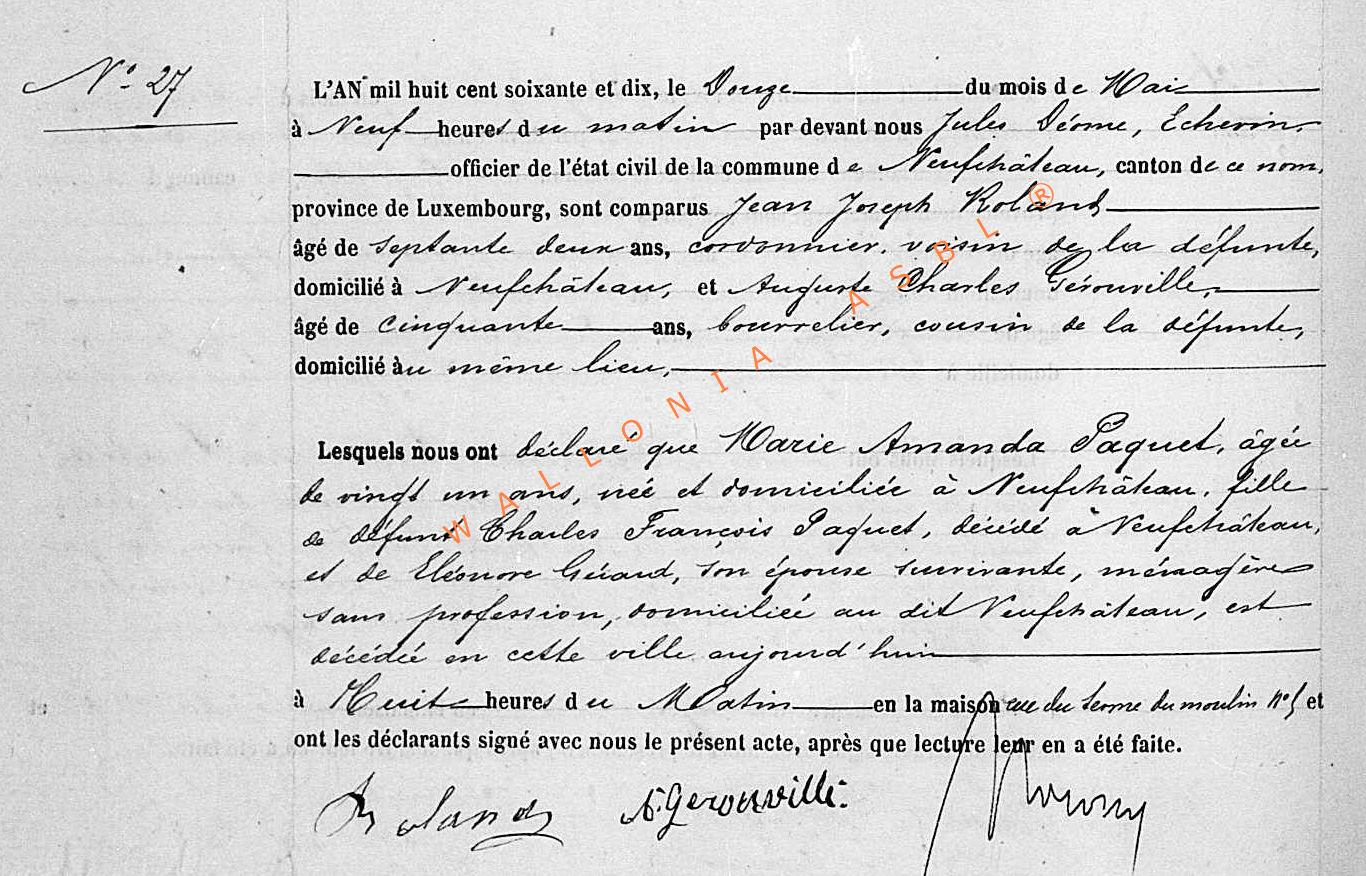 N° 27
L'AN mil huit cent soixante et dix, le Douze du mois de Mai
à Neuf heures du matin par devant nous Jules Déome, Echevin,
officier de l'état civil de la commune de Neufchâteau, canton de ce nom,
province de Luxembourg, sont comparus Jean Joseph Roland
âgé de septante deux ans, cordonnier, voisin de la défunte,
domicilié à Neufchâteau, et Auguste Charles Gérouville,
âgé de Cinquante ans, bourrelier, cousin de la défunte,
domicilié au même lieu,
Lesquels nous ont déclaré que Marie Amanda Paquet, âgée
de vingt un ans, née et domiciliée à Neufchâteau, fille
de défunt Charles François Paquet, décédé à Neufchâteau,
et de Eléonore Gérard, son épouse survivante, ménagère
sans profession, domiciliée au dit Neufchâteau, est
décédée en cette ville aujourd'hui
à Huit heures du Matin en la maison rue du moulin N° 5 et
ont les déclarants signé avec nous le présent acte, après que lecture leur en a été faite.
Roland A. Gerouville
WALLONIA ASBL ®